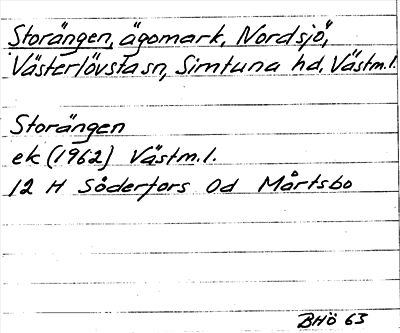 Storängen, ägomark, Nordsjö,
Västerlövsta sn, Simtuna hd, Västm.l.
Storängen
ek (1962) Västm.l.
12 H Söderfors 0d Mårtsbo
BHÖ 63